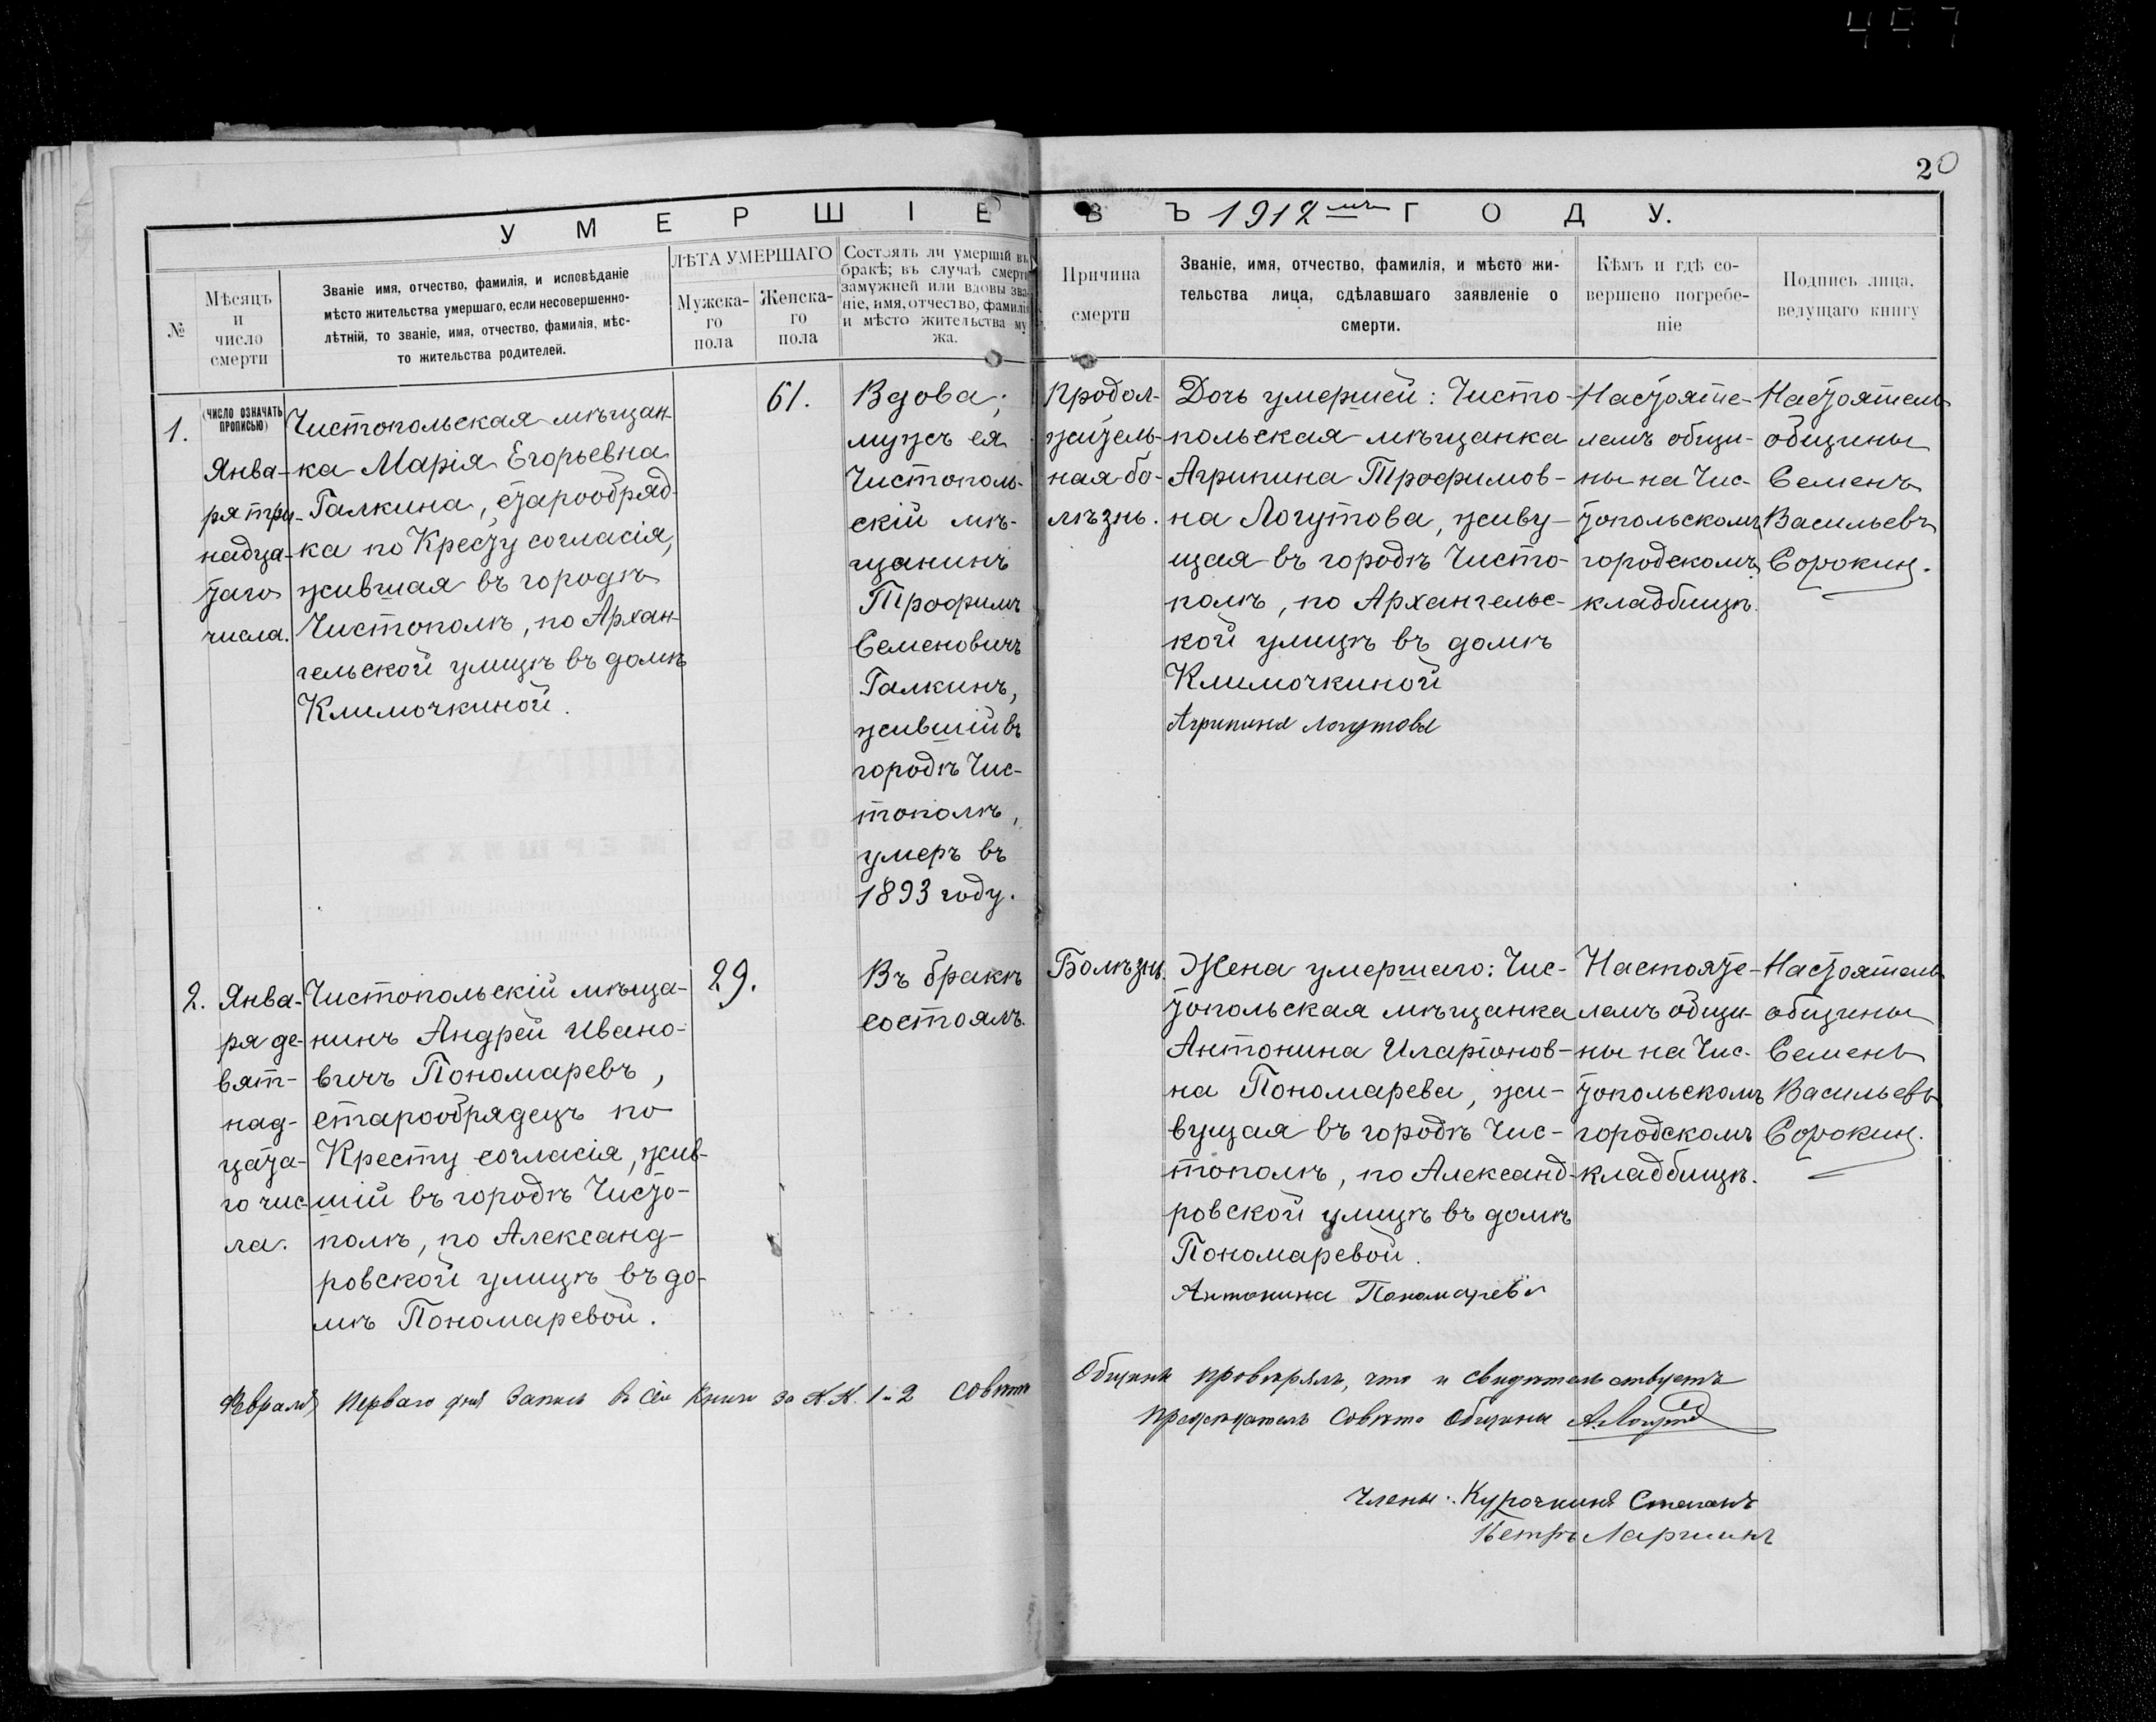 20
УМЕРШІЕ ВЪ 1912 мъ ГОДУ.
№
Мѣсяцъ
и
число
смерти
Званіе имя, отчество, фамилія, и исповѣданіе
мѣсто жительства умершаго, если несовершенно-
лѣтній, то званіе, имя, отчество, фамилія, мѣс-
то жительства родителей.
ЛѢТА УМЕРШАГО
Мужска-
го
пола
Женска-
го
пола
Состоялъ ли умершій въ
бракѣ; въ случаѣ смерти
замужней или вдовы зва-
ніе, имя, отчество, фамилія
и мѣсто жительства му
жа.
Причина
смерти
Званіе, имя, отчество, фамилія, и мѣсто жи-
тельства лица, сдѣлавшаго заявленіе о
смерти.
Кѣмъ и гдѣ со-
вершено погребе-
ніе
Подпись лица,
ведущаго книгу
1.
(ЧИСЛО ОЗНАЧАТЬ
ПРОПИСЬЮ)
Янва-
ря три-
надца-
таго
числа.
Чистопольская мѣщан-
ка Марія Егорьевна
Галкина, старообряд-
ка по Кресту согласія,
жившая въ городѣ
Чистополѣ, по Архан-
гельской улицѣ въ домѣ
Климочкиной.
61.
Вдова;
мужъ ея
Чистополь-
скій мѣ-
щанинъ
Трофимъ
Семеновичъ
Галкинъ,
жившій въ
городѣ Чис-
тополѣ,
умеръ въ
1893 году.
Продол-
житель-
ная бо-
лѣзнь.
Дочь умершей: Чисто-
польская мѣщанка
Агрипина Трофимов-
на Логутова, живу-
щая въ городѣ Чисто-
полѣ, по Архангельс-
кой улицѣ въ домѣ
Климочкиной
Агрипина Логутова
Настояте-
лемъ общи-
ны на Чис-
топольскомъ
городскомъ
кладбищѣ.
Настоятель
общины
Семенъ
Васильевъ
Сорокин.
2.
Янва-
ря де-
вят-
над-
цата-
го чис-
ла.
Чистопольскій мѣща-
нинъ Андрей Ивано-
вичъ Пономаревъ,
старообрядецъ по
Кресту согласія, жив-
шій въ городѣ Чисто-
полѣ, по Александ-
ровской улицѣ въ до-
мѣ Пономаревой.
29.
Въ бракѣ
состоялъ.
Болѣзнь.
Жена умершаго: Чис-
топольская мѣщанка
Антонина Иларіонов-
на Пономарева, жи-
вущая въ городѣ Чис-
тополѣ, по Александ-
ровской улицѣ въ домѣ
Пономаревой.
Антонина Пономарева
Настояте-
лемъ общи-
ны на Чис-
топольскомъ
городскомъ
кладбищѣ.
Настоятель
общины
Семенъ
Васильевъ
Сорокин.
Февраля перваго дня Запись в сей Книги за №.№. 1 и 2 Совѣтъ Общины провѣрялъ, что и свидѣтельствуетъ
Предсѣдатель Совѣта Общины А. Логутов
Члены: Курочкинъ Степанъ
Петръ Ларшинъ